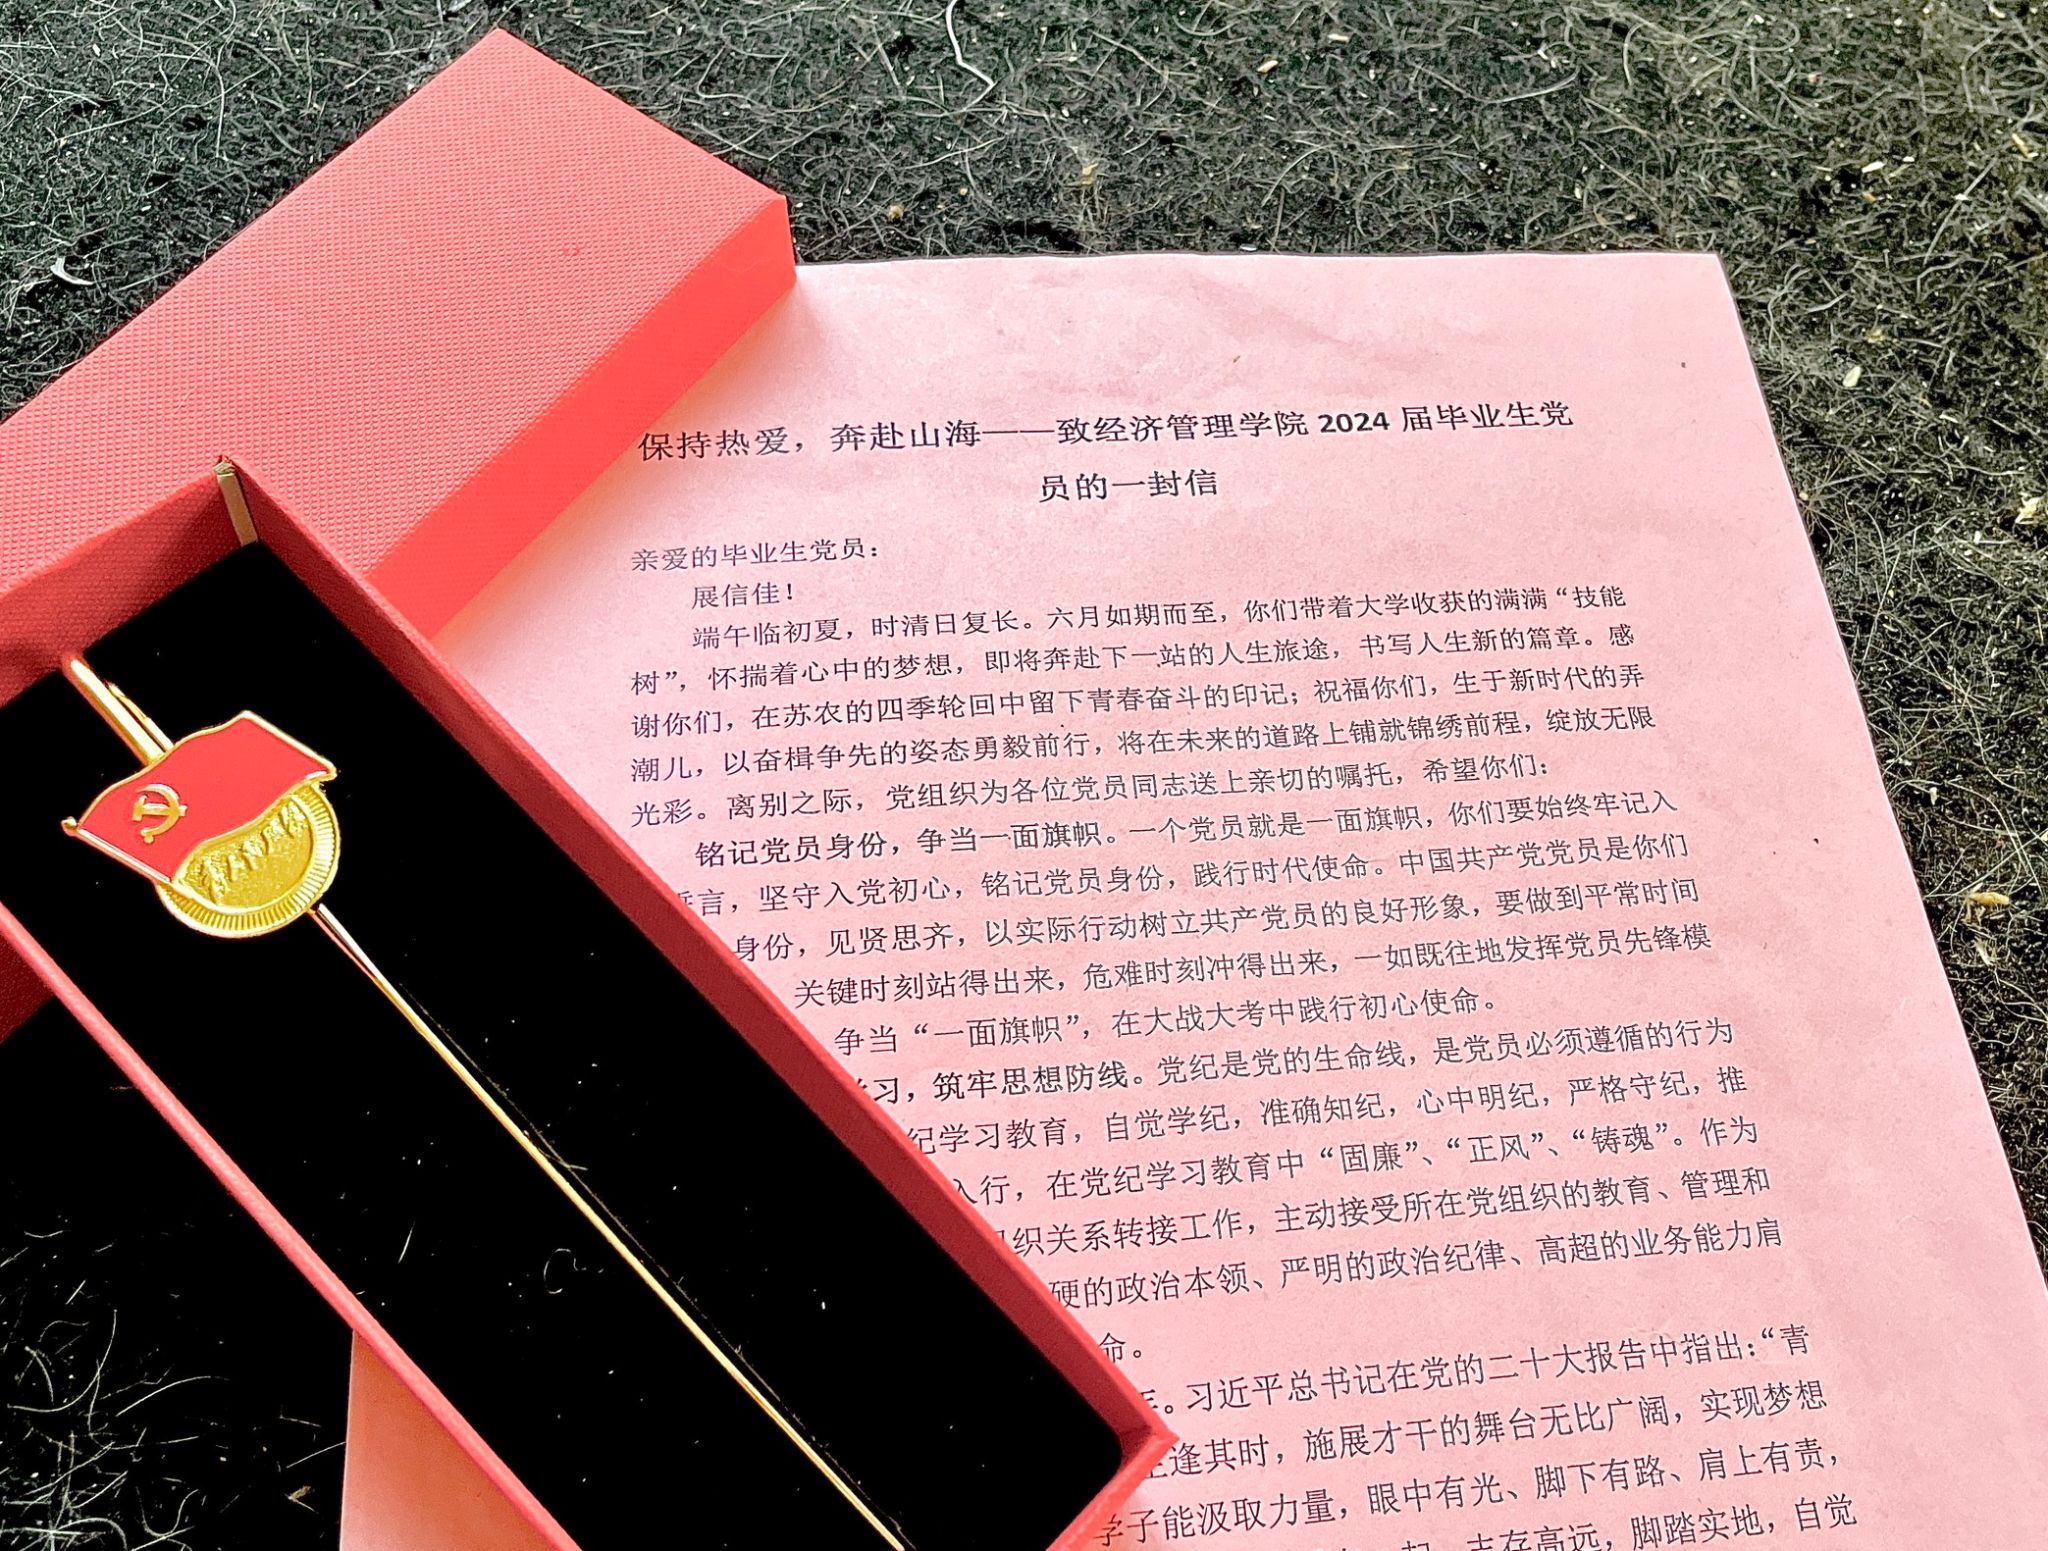 保持热爱，奔赴山海——致经济管理学院 2024 届毕业生党
员的一封信
亲爱的毕业生党员：
展信佳！
端午临初夏，时清日复长。六月如期而至，你们带着大学收获的满满“技能
树”，怀揣着心中的梦想，即将奔赴下一站的人生旅途，书写人生新的篇章。感
谢你们，在苏农的四季轮回中留下青春奋斗的印记；祝福你们，生于新时代的弄
潮儿，以奋楫争先的姿态勇毅前行，将在未来的道路上铺就锦绣前程，绽放无限
光彩。离别之际，党组织为各位党员同志送上亲切的嘱托，希望你们：
铭记党员身份，争当一面旗帜。一个党员就是一面旗帜，你们要始终牢记入
誓言，坚守入党初心，铭记党员身份，践行时代使命。中国共产党党员是你们
身份，见贤思齐，以实际行动树立共产党员的良好形象，要做到平常时间
关键时刻站得出来，危难时刻冲得出来，一如既往地发挥党员先锋模
争当“一面旗帜”，在大战大考中践行初心使命。
习，筑牢思想防线。党纪是党的生命线，是党员必须遵循的行为
纪学习教育，自觉学纪，准确知纪，心中明纪，严格守纪，推
入行，在党纪学习教育中“固廉”、“正风”、“铸魂”。作为
组织关系转接工作，主动接受所在党组织的教育、管理和
硬的政治本领、严明的政治纪律、高超的业务能力肩
命。
。习近平总书记在党的二十大报告中指出：“青
生逢其时，施展才干的舞台无比广阔，实现梦想
学子能汲取力量，眼中有光、脚下有路、肩上有责，
志存高远，脚踏实地，自觉